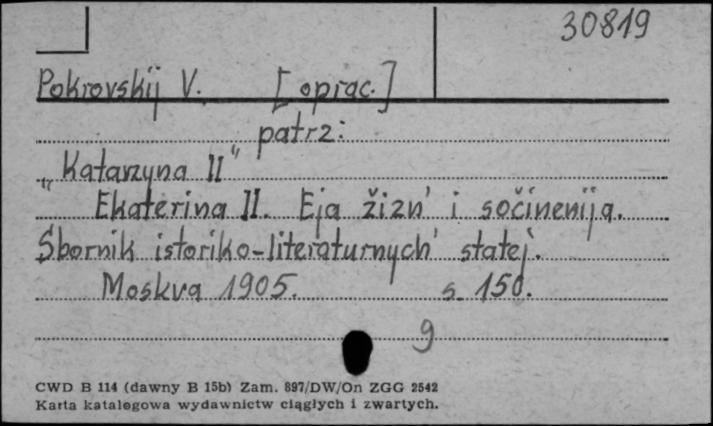 30819
Pokrovskij V. [oprac.]
patrz:
„Katarzyna II"
Ekaterina II. Eja žizn' i sočinenija.
Sbornik istoriko-literaturnych' statej.
Moskva 1905. s. 150.
9
CWD B 114 (dawny B 15b) Zam. 897/DW/On ZGG 2542
Karta katalogowa wydawnictw ciągłych i zwartych.